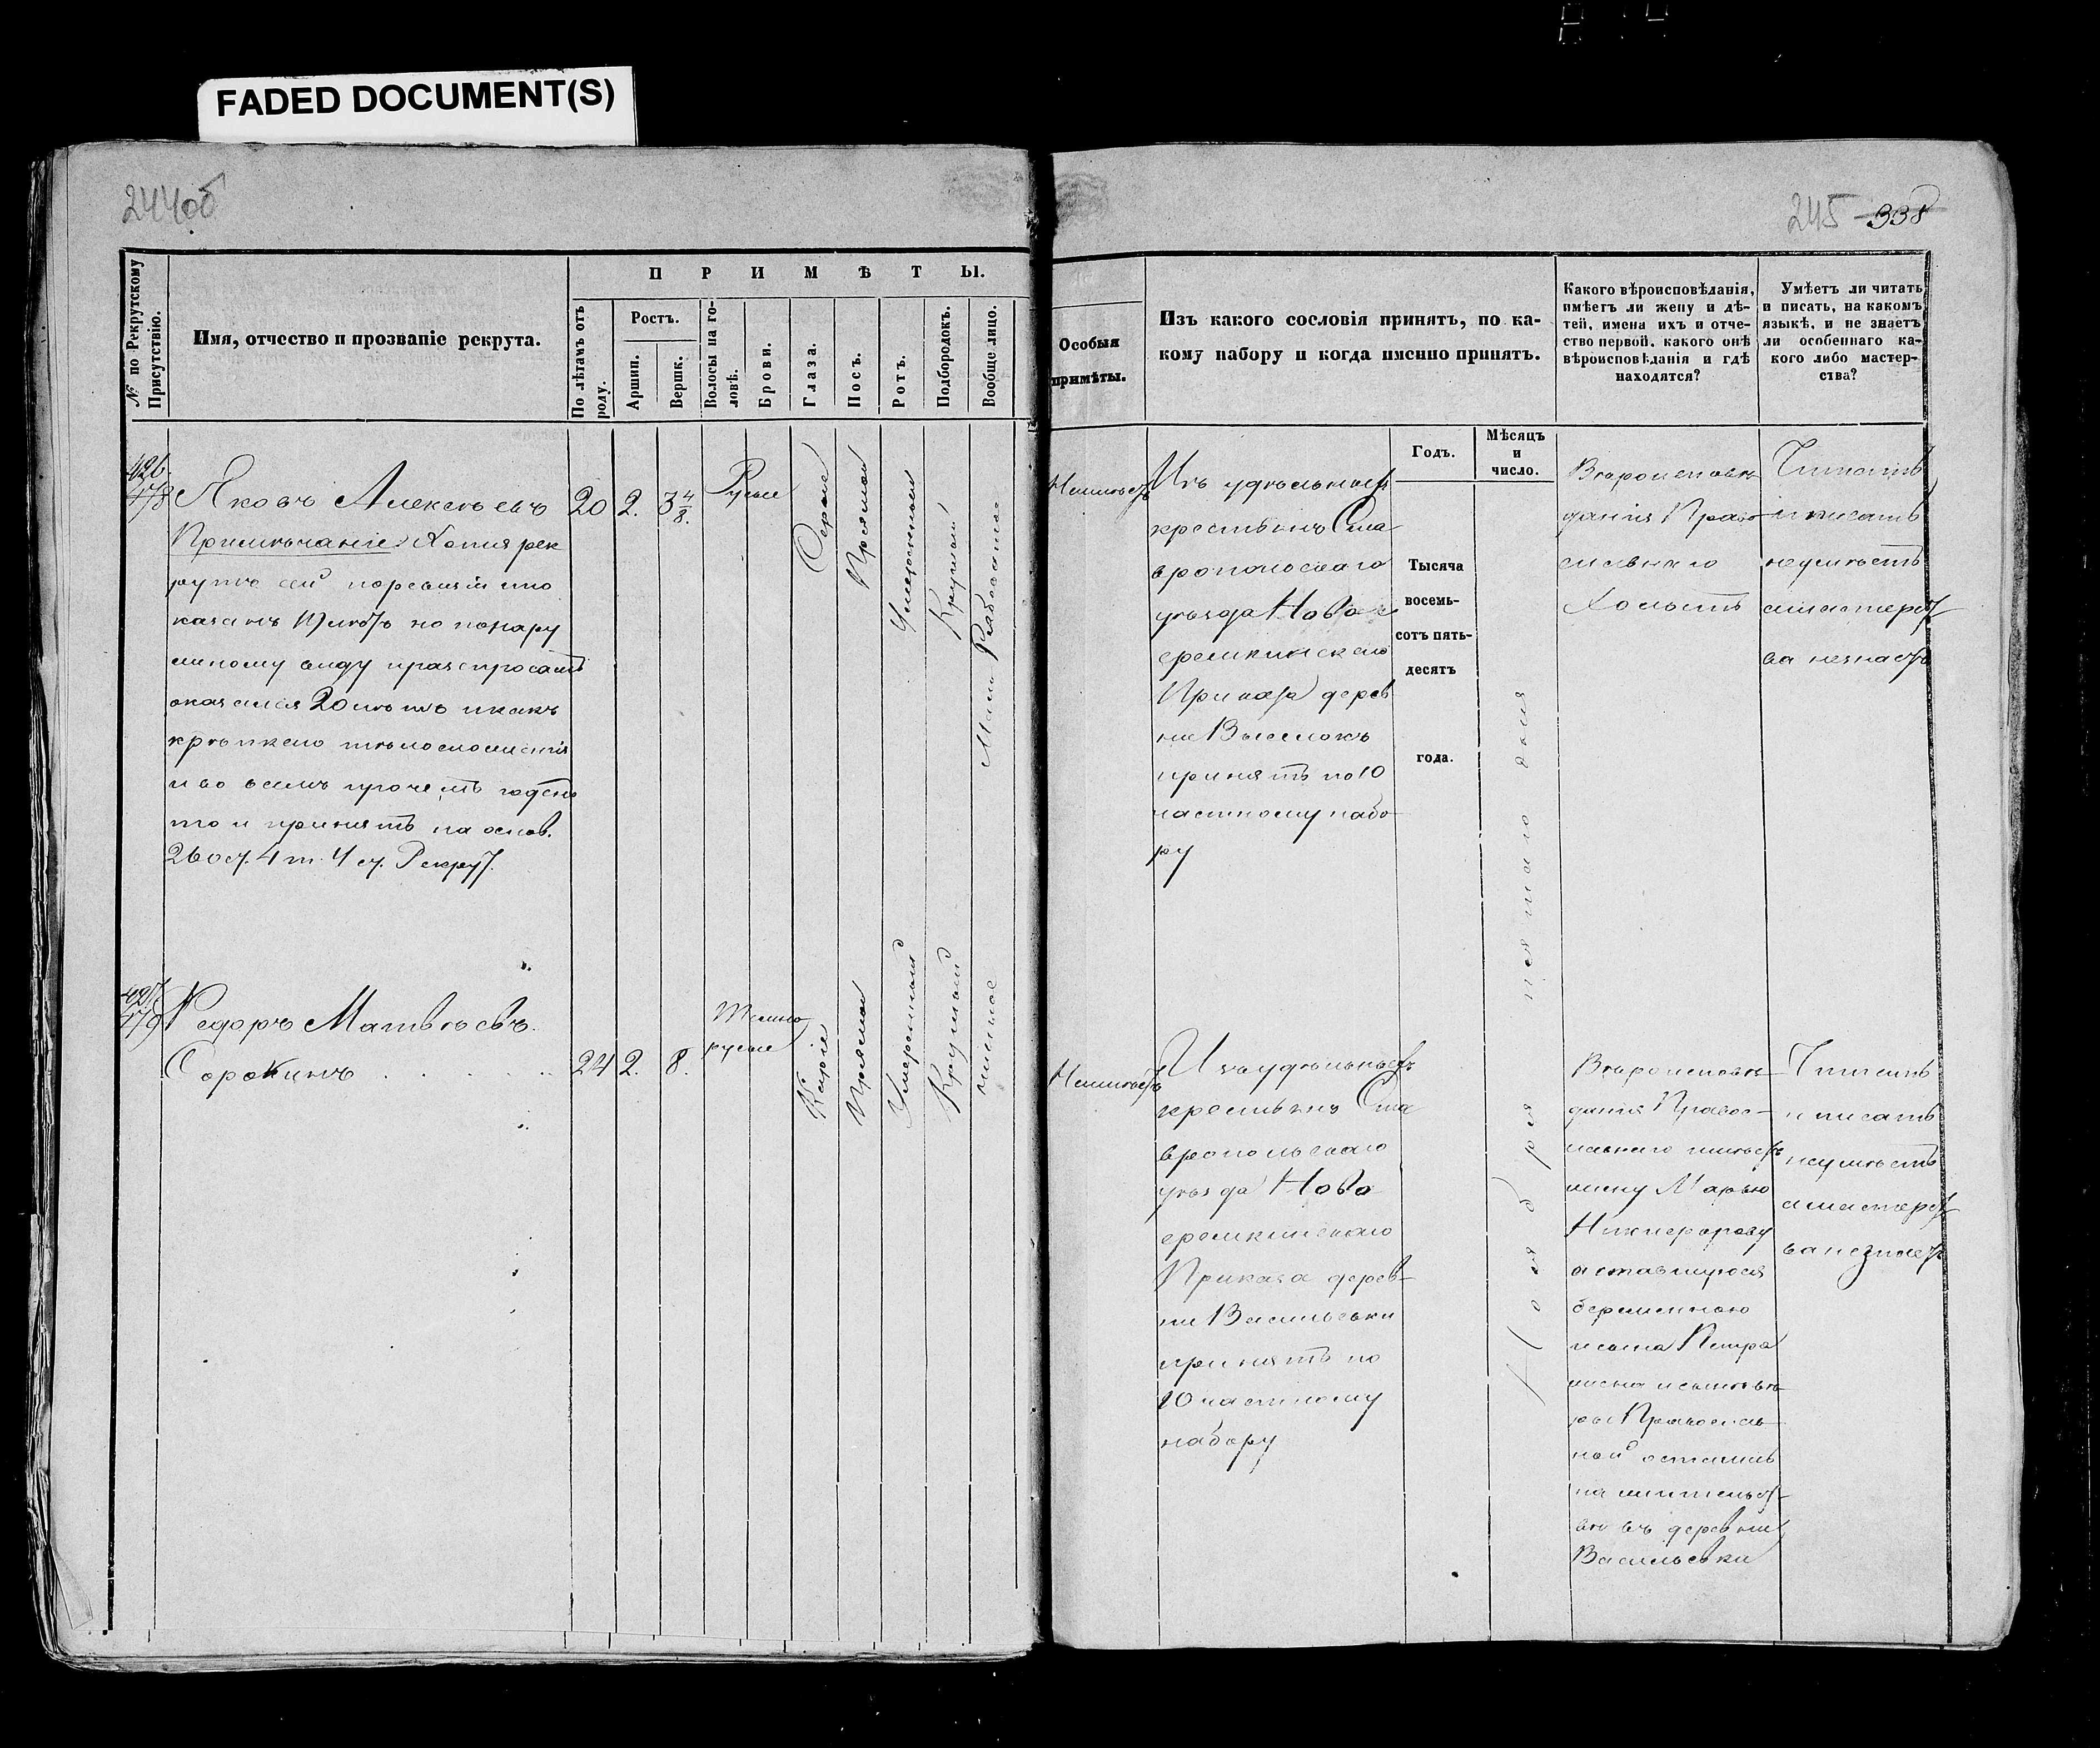 FADED DOCUMENT(S)
244об
245 338
№ по Рекрутскому Присутствію.
Имя, отчество и прозваніе рекрута.
ПРИМѢТЫ.
По лѣтамъ отъ роду.
Ростъ.
Аршин.
Вершк.
Волосы на головѣ.
Брови.
Глаза.
Носъ.
Ротъ.
Подбородокъ.
Вообще лицо.
Особыя
примѣты.
Изъ какого сословія принятъ, по ка-
кому набору и когда именно принятъ.
Какого вѣроисповѣданія,
имѣетъ ли жену и дѣ-
тей, имена ихъ и отче-
ство первой, какого онѣ
вѣроисповѣданія и гдѣ
находятся?
Умѣетъ ли читать
и писать, на какомъ
языкѣ, и не знаетъ
ли особеннаго ка-
кого либо мастер-
ства?
Годъ.
Мѣсяцъ
и
число.
Тысяча
восемь-
сотъ пять-
десятъ
года.
426.
478
Яковъ Алексѣевъ
Примѣчаніе: Хотя рек
рутъ сей по ревизіи по
казанъ лѣтъ но по нару
жному виду и разспросамъ
оказался 20 лѣтъ и какъ
крѣпкаго тѣлосложенія
и во всемъ прочемъ годенъ
то и принятъ на основ.
260 ст. 4 т. Уст. Рекрут.
20
2.
3 4/8.
Русые
Сѣрые
Прямой
Умѣренный
Круглый
Мало Рябоватое
Неимѣетъ
Изъ удѣльныхъ
крестьянъ Ста
вропольскаго
уѣзда Ново
еремкинскаго
Приказа дерев
ни Выселокъ
принятъ по 10
частному набо
ру
Вѣроисповѣ
данія Право
славнаго
Холостъ
Читать
и писать
неумѣетъ
а мастерст
ва незнаетъ
Ноября
427.
479
Федоръ Матвѣевъ
Сорокинъ
24
2.
8.
Темно
русые
Карие
Прямой
Умѣренный
Круглый
чистое
Неимѣетъ
Изъ удѣльныхъ
крестьянъ Ста
вропольскаго
уѣзда Ново
еремкинскаго
Приказа дерев-
ни Васильевки
принятъ по
10 частному
набору
Вѣроисповѣ
данія Правос-
лавнаго имѣетъ
жену Марью
Никифорову
оставшуюся
беременною
и сына Петра
жена и сынъ вѣ
ры Православ
ной остались
на жительст-
во въ деревни
Васильевки
Читать
и писать
неумѣетъ
а мастерст
ва незнаетъ